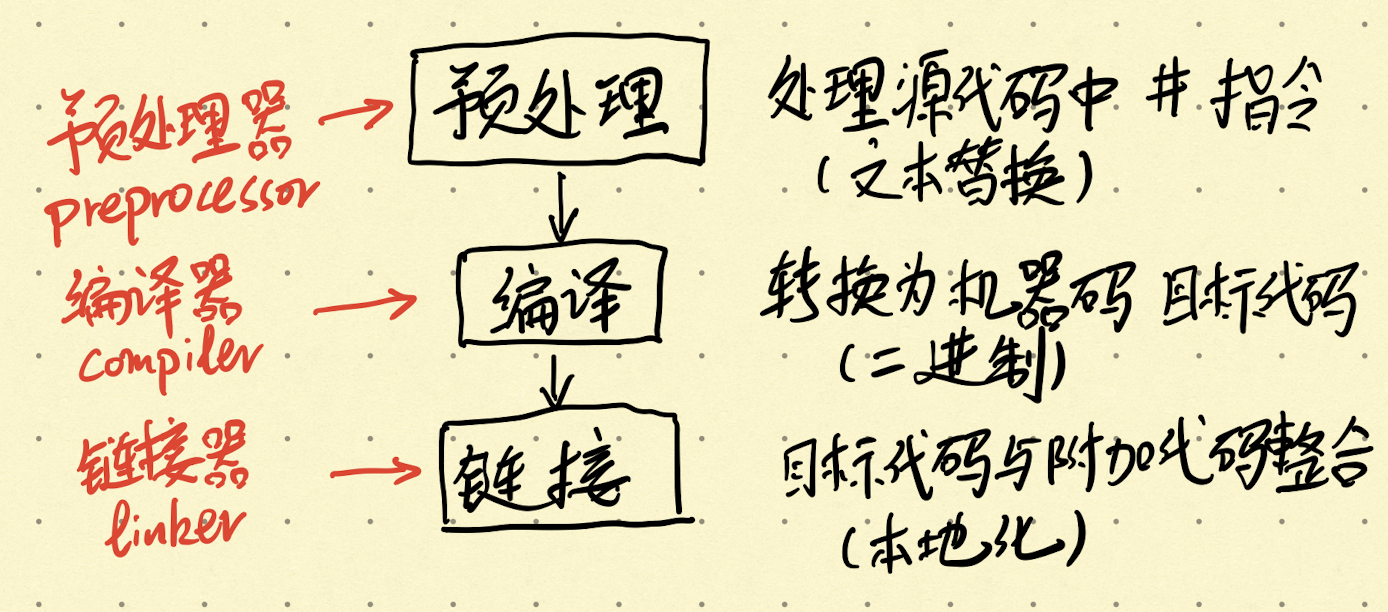 预处理器 preprocessor
预处理
处理源代码中 # 指令
(文本替换)
编译器
compiler
编译
转换为机器码 目标代码
(二进制)
链接器
linker
链接
目标代码与附加代码整合
(本地化)